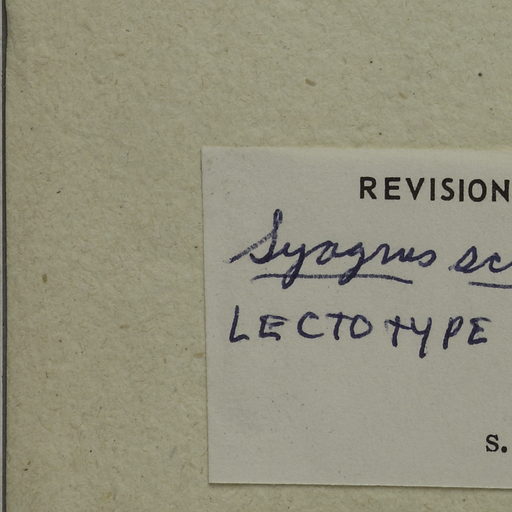 REVISION
Syagrus sc
LECTOTYPE
S.